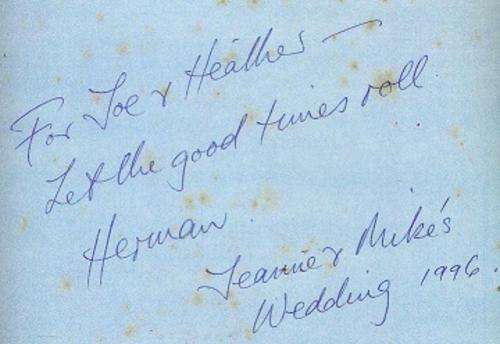 For Joe & Heather —
Let the good times roll.
Herman.
Jeannie & Mike's
Wedding 1996.